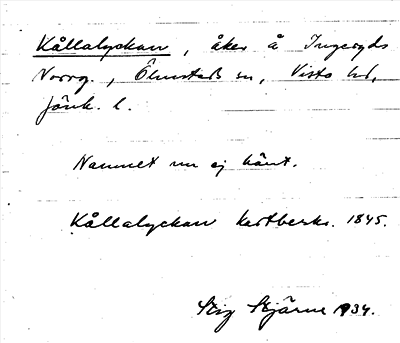 Kållalyckan, åker å Ingeryds
Norrg., Ölmstads sn, Vista hd,
Jönk. l.
Namnet nu ej känt.
Kållalyckan kartbeskr. 1845.
Stig Stjärne 1934.